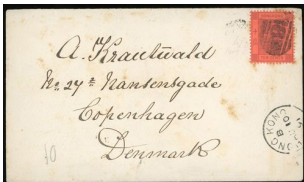 A. Krautwald
No. 27 Nansensgade
Copenhagen
Denmark
HONG KONG
10